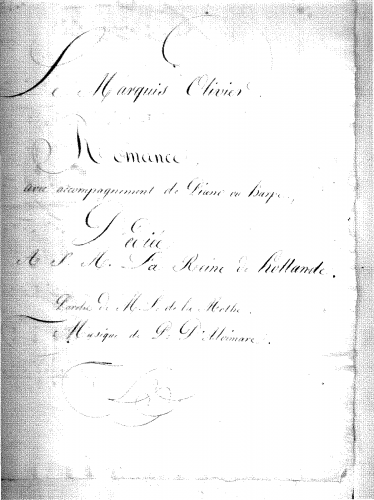 Le Marquis Olivier.
Romance
avec accompagnement de Piano ou Harpe,
Dédiée
A S. M. La Reine de Hollande.
Paroles de M. L. de la Mothe
Musique de P. D'Alvimare.